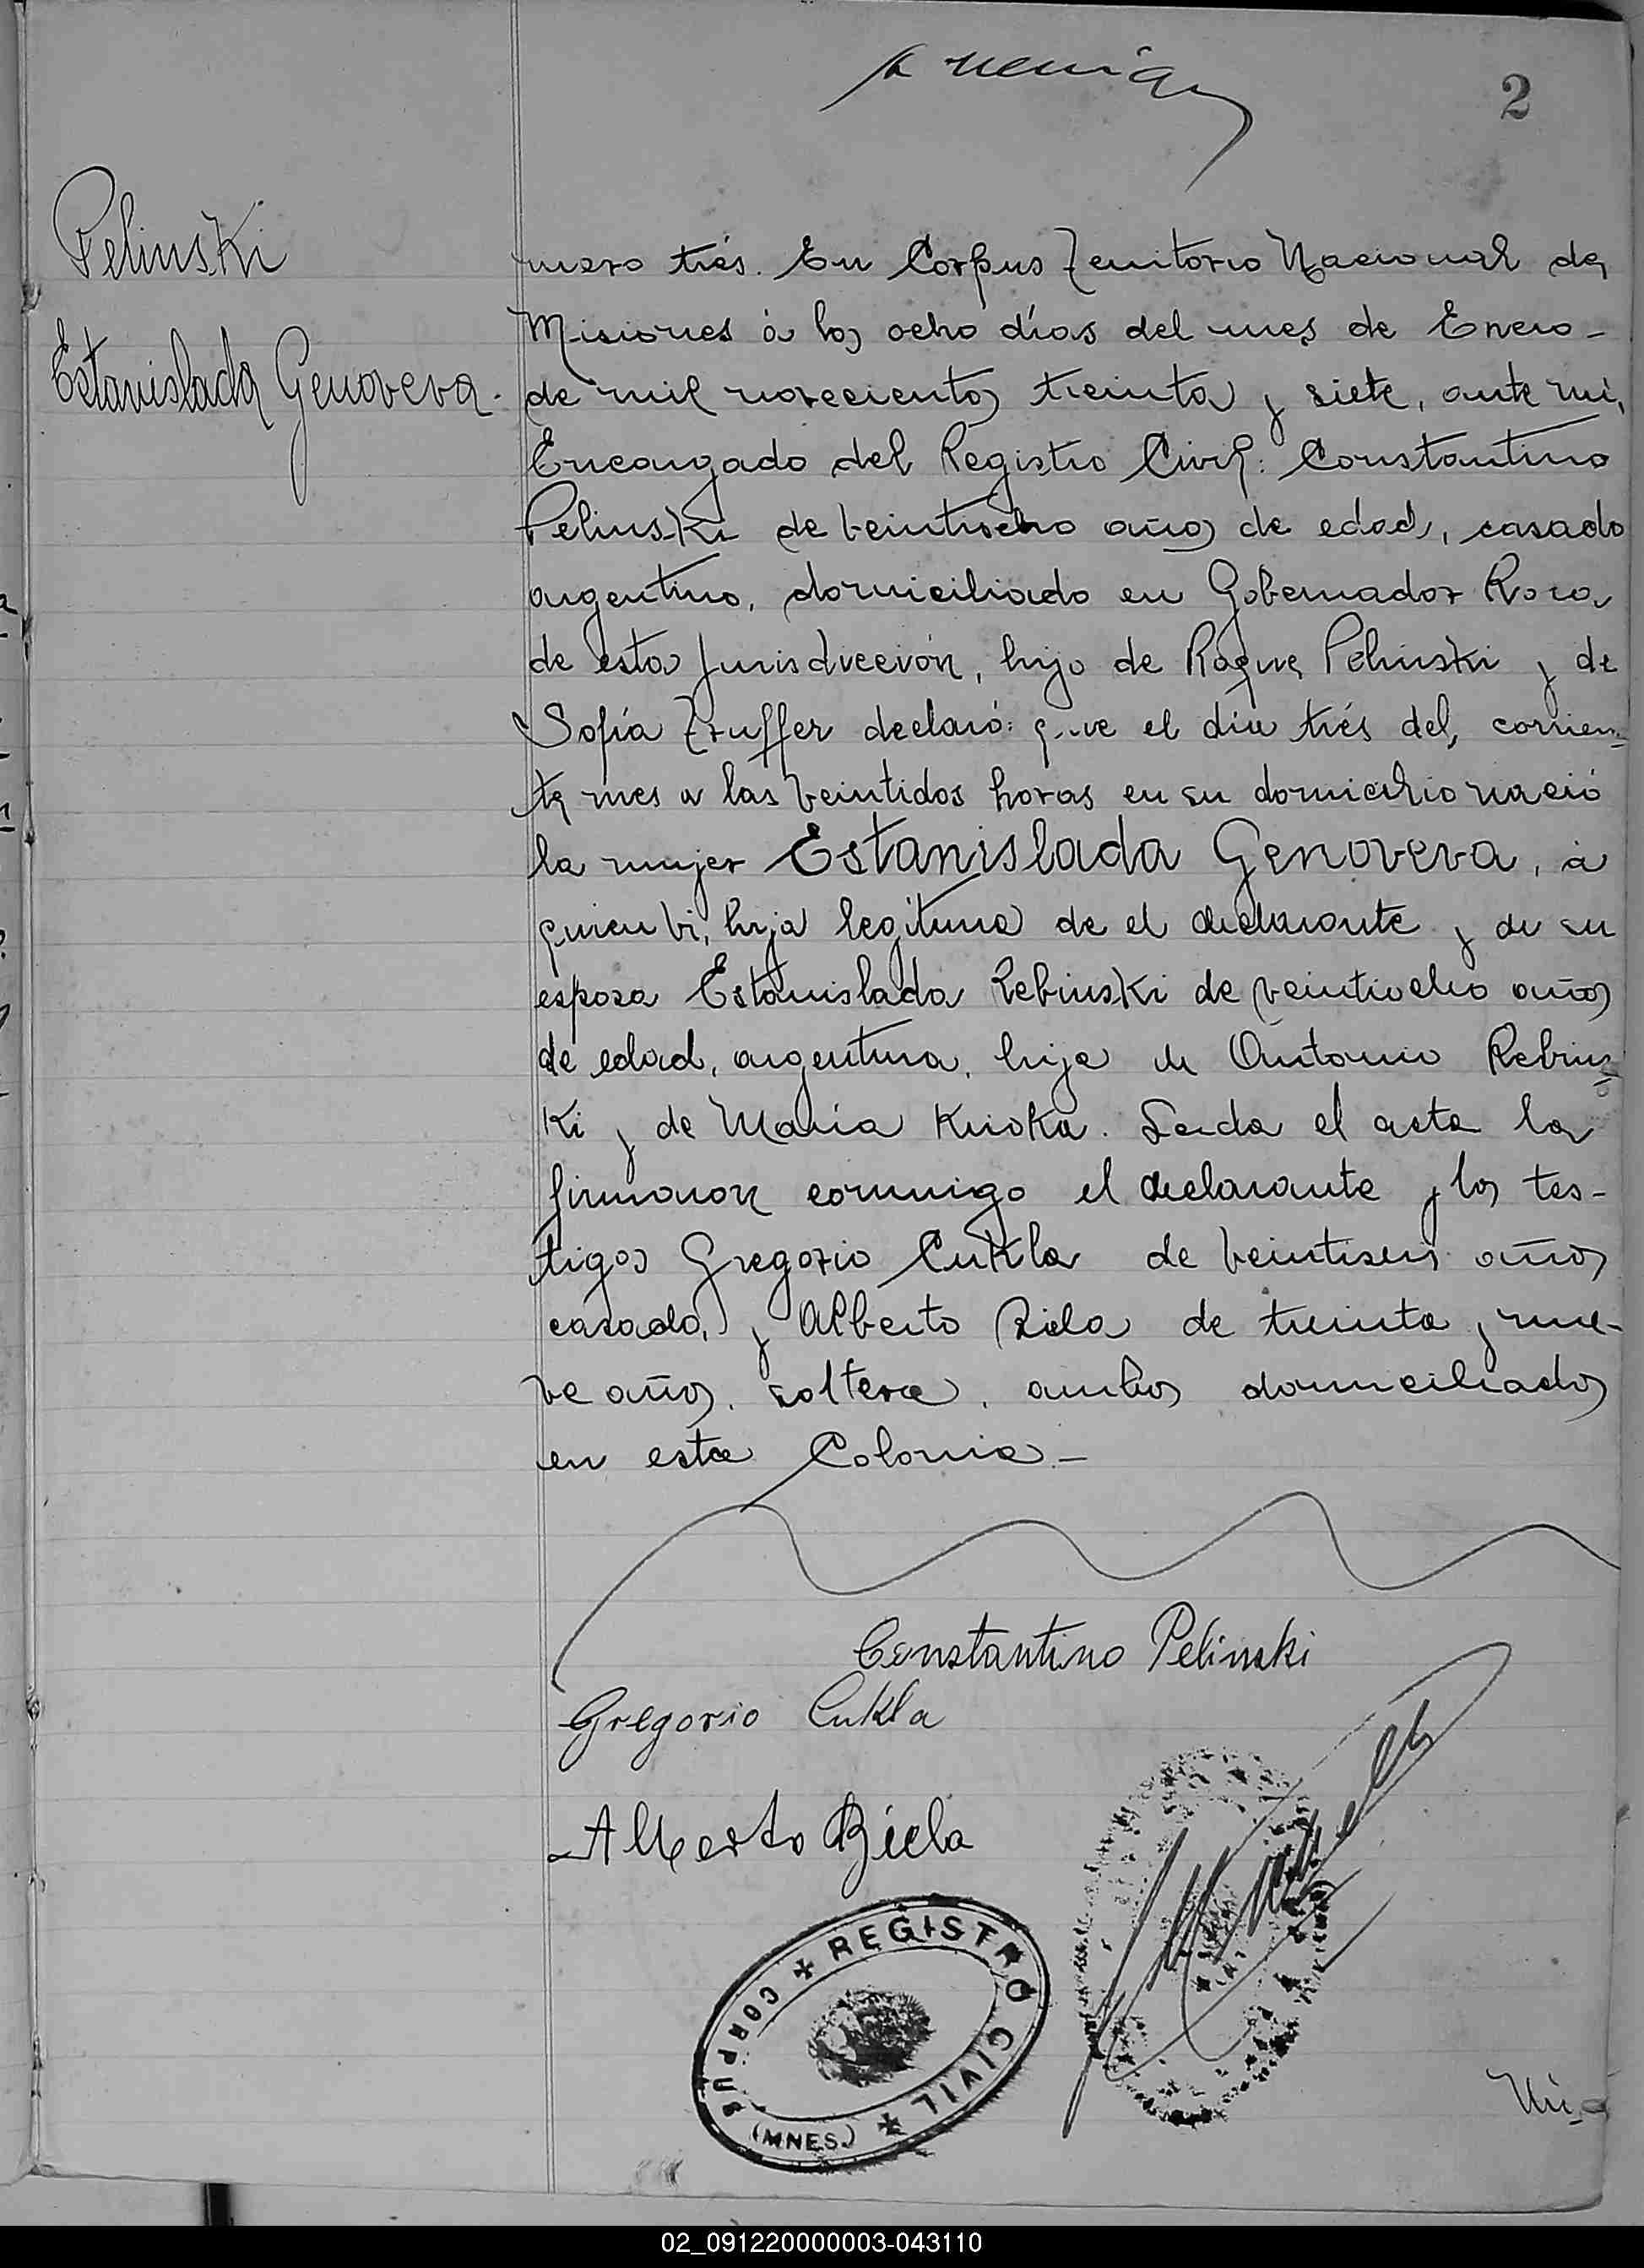 2
Pelinski
Estanislada Genoveva.
mero trés. En Corpus Territorio Nacional de
Misiones á los ocho días del mes de Enero -
de mil novecientos treinta y siete, ante mí,
Encargado del Registro Civil: Constantino
Pelinski de veintiocho años de edad, casado
argentino, domiciliado en Gobernador Roca,
de esta jurisdicción, hijo de Roque Pelinski y de
Sofía Truffer declaró: que el día trés del, corrien=
te mes a las veintidos horas en su domicilio nació
la mujer Estanislada Genoveva, á
quien vi, hija legítima de el declarante y de su
esposa Estanislada Rebinski de veintiocho años
de edad, argentina, hija de Antonio Rebins=
ki y de María Knoka. Leida el acta la
firmaron conmigo el declarante y los tes-
tigos Gregorio Cukla de veintiseis años
casado, y Alberto Biela de treinta y nue-
ve años, soltero, ambos domiciliados
en esta Colonia -
Constantino Pelinski
Gregorio Cukla
Alberto Biela
REGISTRO CIVIL
CORPUS
(MNES.)
Nú=
02_091220000003-043110